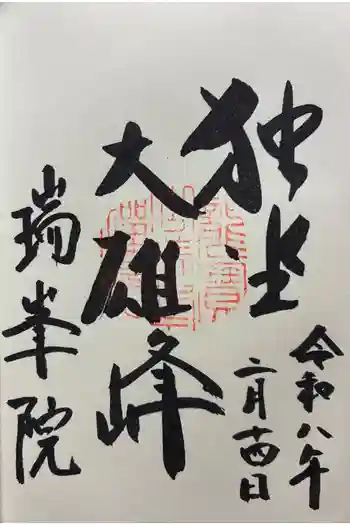 令和八年
二月十四日
独坐
大雄峰
瑞峯院